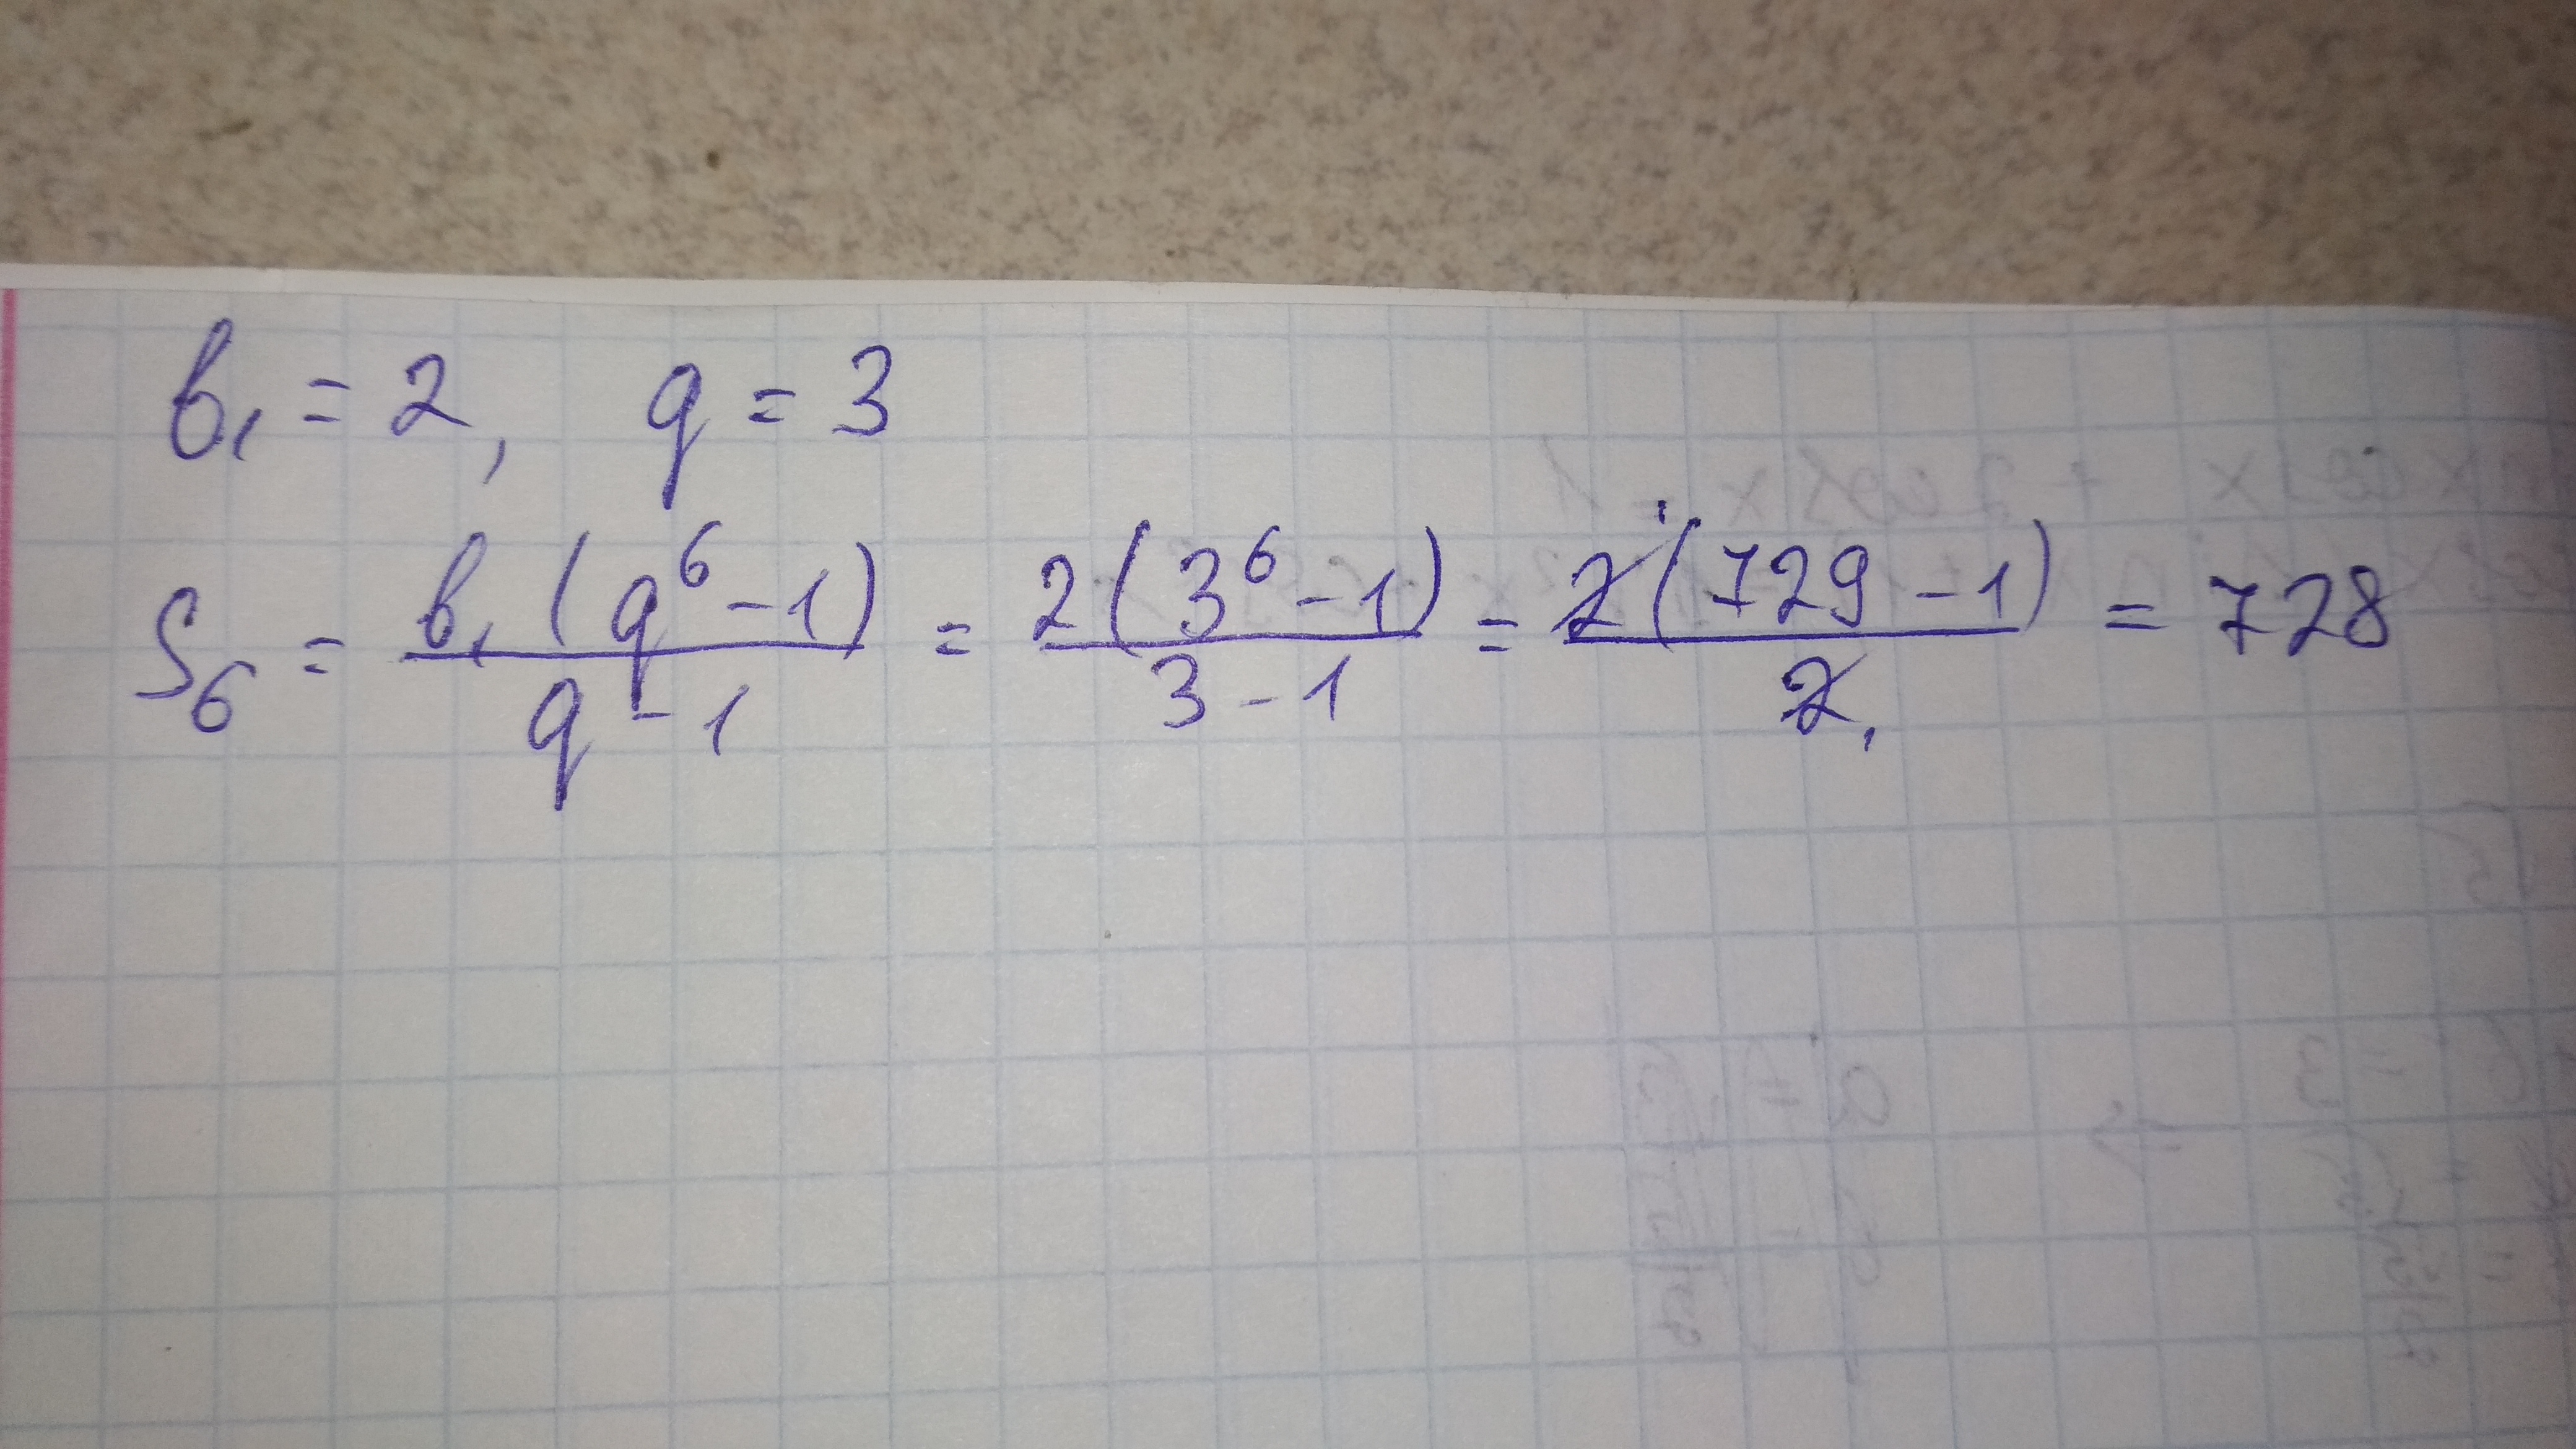 b₁ = 2, q = 3
S₆ = b₁(q⁶-1)/q-1 = 2(3⁶-1)/3-1 = 2¹(729-1)/2₁ = 728